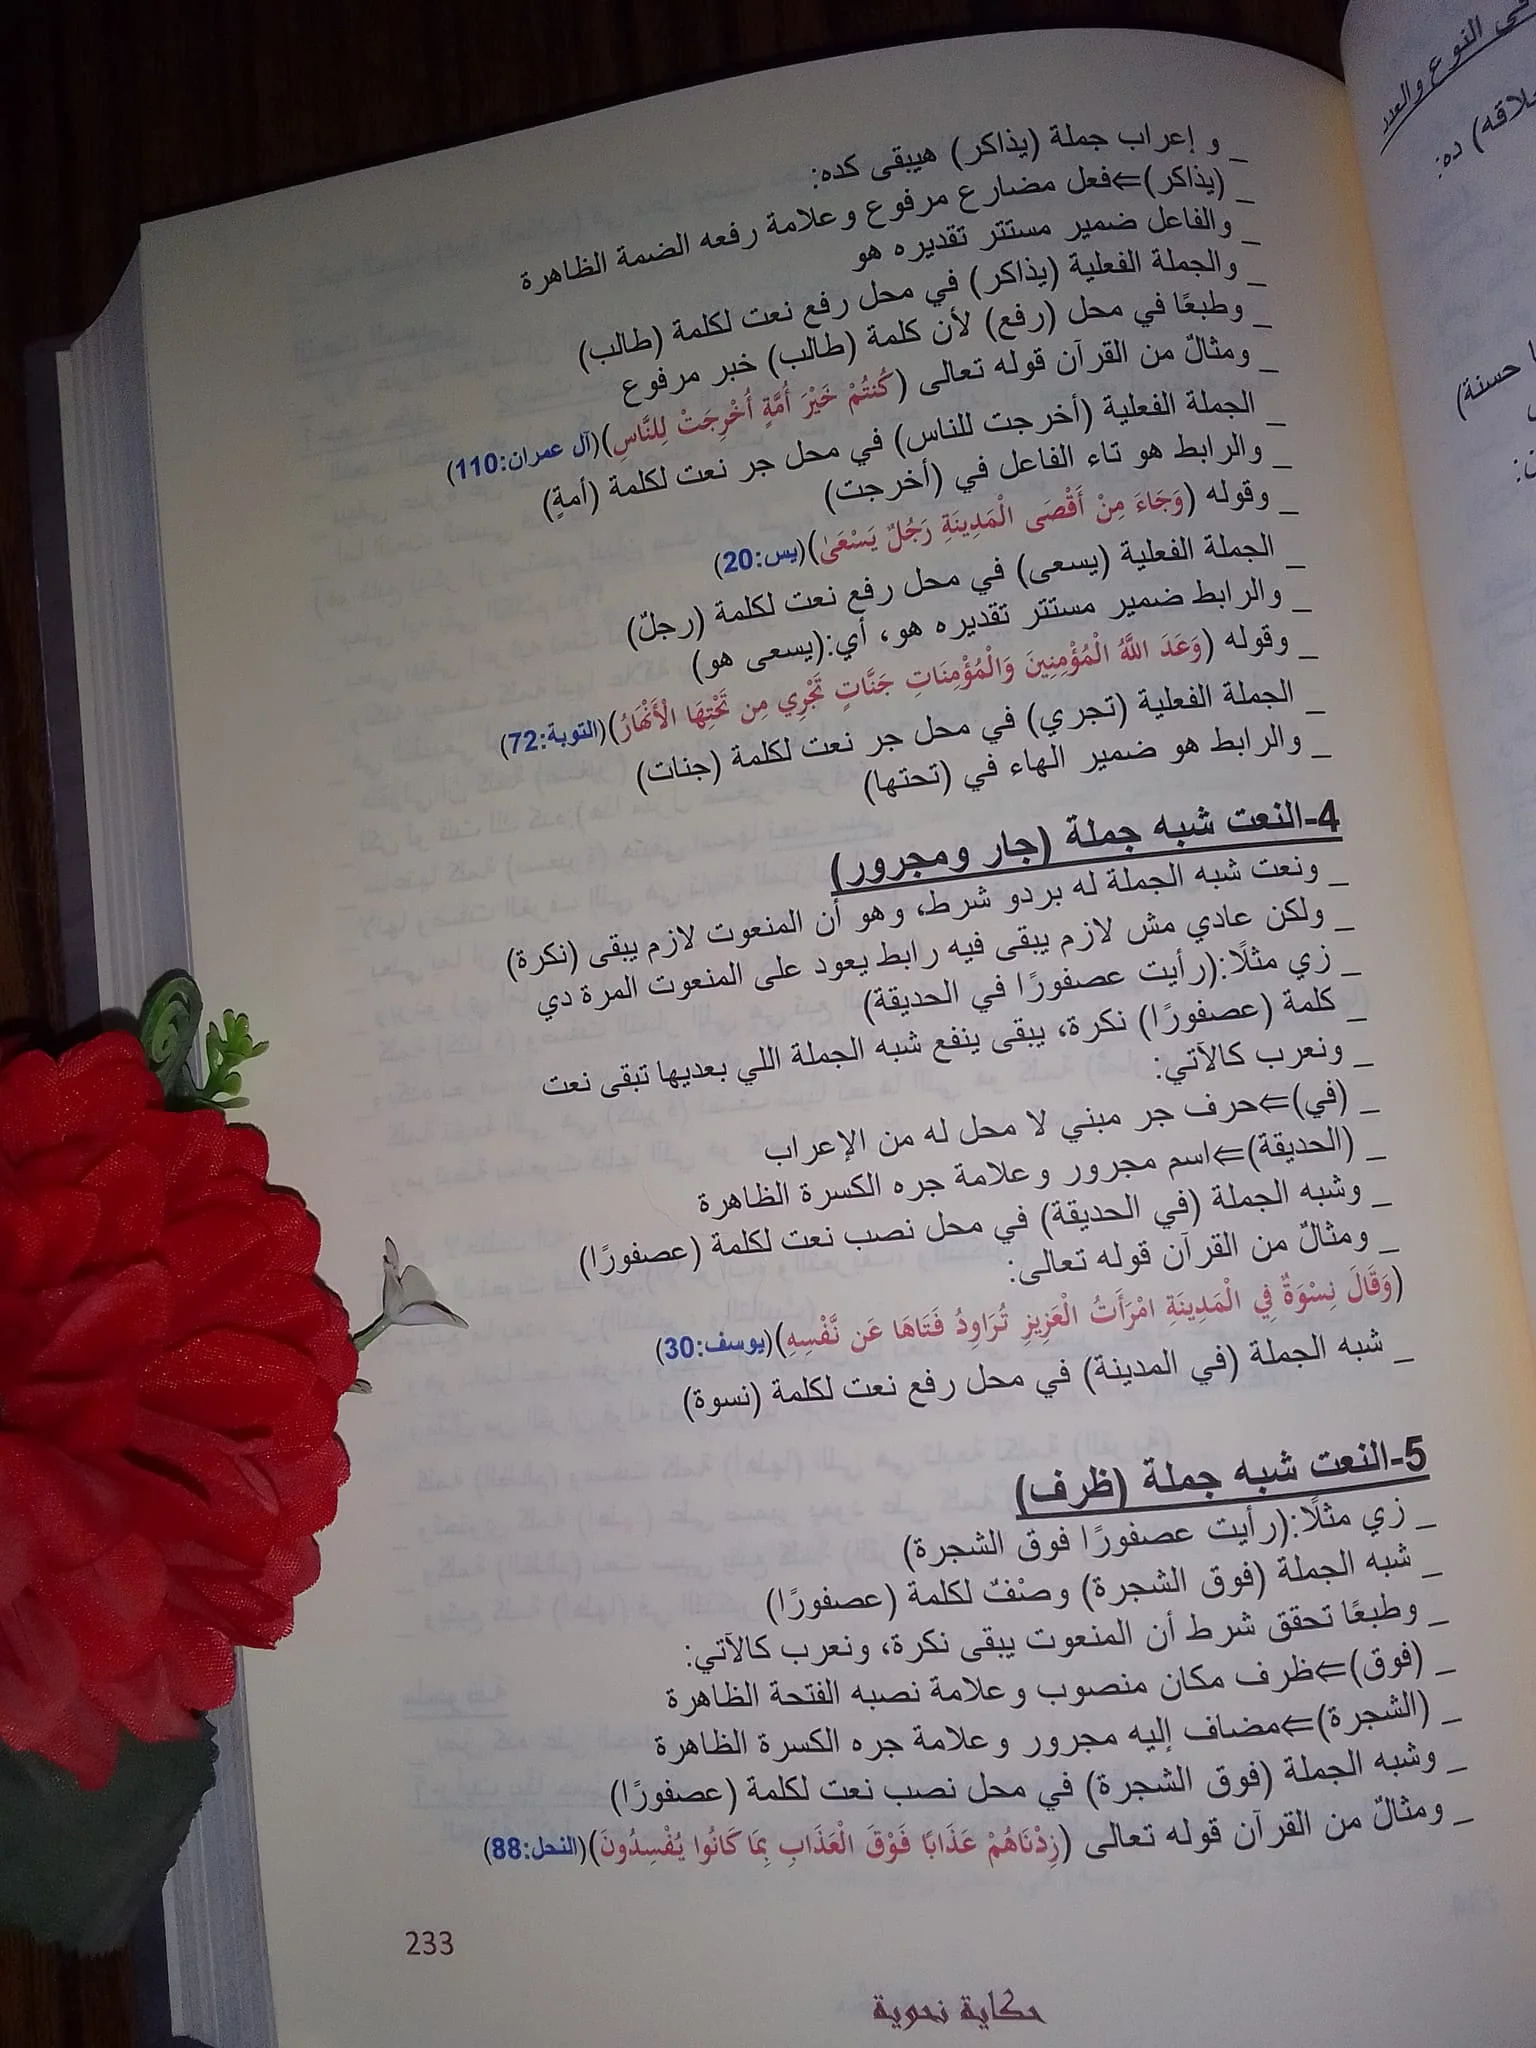 _ و إعراب جملة (يذاكر) هيبقى كده:
_ (يذاكر)⇐فعل مضارع مرفوع وعلامة رفعه الضمة الظاهرة
_ والفاعل ضمير مستتر تقديره هو
_ والجملة الفعلية (يذاكر) في محل رفع نعت لكلمة (طالب)
_ وطبعًا في محل (رفع) لأن كلمة (طالب) خبر مرفوع
_ ومثالٌ من القرآن قوله تعالى (كُنتُمْ خَيْرَ أُمَّةٍ أُخْرِجَتْ لِلنَّاسِ)(آل عمران:110)
_ الجملة الفعلية (أخرجت للناس) في محل جر نعت لكلمة (أمةٍ)
_ والرابط هو تاء الفاعل في (أخرجت)
_ وقوله (وَجَاءَ مِنْ أَقْصَى الْمَدِينَةِ رَجُلٌ يَسْعَىٰ)(يس:20)
_ الجملة الفعلية (يسعى) في محل رفع نعت لكلمة (رجلٌ)
_ والرابط ضمير مستتر تقديره هو، أي:(يسعى هو)
_ وقوله (وَعَدَ اللَّهُ الْمُؤْمِنِينَ وَالْمُؤْمِنَاتِ جَنَّاتٍ تَجْرِي مِن تَحْتِهَا الْأَنْهَارُ)(التوبة:72)
_ الجملة الفعلية (تجري) في محل جر نعت لكلمة (جنات)
_ والرابط هو ضمير الهاء في (تحتها)
4-النعت شبه جملة (جار ومجرور)
_ ونعت شبه الجملة له بردو شرط، وهو أن المنعوت لازم يبقى (نكرة)
_ ولكن عادي مش لازم يبقى فيه رابط يعود على المنعوت المرة دي
_ زي مثلًا:(رأيت عصفورًا في الحديقة)
_ كلمة (عصفورًا) نكرة، يبقى ينفع شبه الجملة اللي بعديها تبقى نعت
_ ونعرب كالآتي:
_ (في)⇐حرف جر مبني لا محل له من الإعراب
_ (الحديقة)⇐اسم مجرور وعلامة جره الكسرة الظاهرة
_ وشبه الجملة (في الحديقة) في محل نصب نعت لكلمة (عصفورًا)
_ ومثالٌ من القرآن قوله تعالى:
(وَقَالَ نِسْوَةٌ فِي الْمَدِينَةِ امْرَأَتُ الْعَزِيزِ تُرَاوِدُ فَتَاهَا عَن نَّفْسِهِ)(يوسف:30)
_ شبه الجملة (في المدينة) في محل رفع نعت لكلمة (نسوة)
5-النعت شبه جملة (ظرف)
_ زي مثلًا:(رأيت عصفورًا فوق الشجرة)
_ شبه الجملة (فوق الشجرة) وصْفٌ لكلمة (عصفورًا)
_ وطبعًا تحقق شرط أن المنعوت يبقى نكرة، ونعرب كالآتي:
_ (فوق)⇐ظرف مكان منصوب وعلامة نصبه الفتحة الظاهرة
_ (الشجرة)⇐مضاف إليه مجرور وعلامة جره الكسرة الظاهرة
_ وشبه الجملة (فوق الشجرة) في محل نصب نعت لكلمة (عصفورًا)
_ ومثالٌ من القرآن قوله تعالى (زِدْنَاهُمْ عَذَابًا فَوْقَ الْعَذَابِ بِمَا كَانُوا يُفْسِدُونَ)(النحل:88)
233
حكاية نحوية
في النوع والعدد
ده:
حسنة)